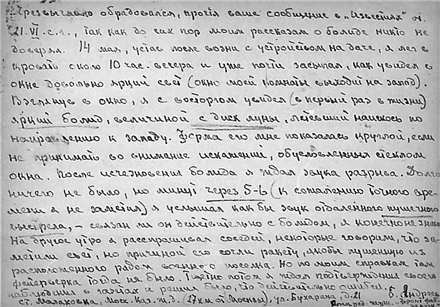 Чрезвычайно обрадовался, прочтя ваше сообщение в „Известиях" от
21.VI.с.г., так как до сих пор моим рассказам о болиде никто не
доверял. 14 мая, устав после возни с устройством на даче, я лег в
кровать около 10 час. вечера и уже почти засыпал, как увидел в
окне довольно яркий свет (окно моей комнаты выходит на запад).
Взглянув в окно, я с восторгом увидел (в первый раз в жизни)
яркий болид, величиной с диск луны, летевший наискось по
направлению к западу. Форма его мне показалась круглой, если
не принимать во внимание искажений, обусловленных стеклом
окна. После исчезновения болида я ждал звука разрыва. Долго
ничего не было, но минут через 5-6 (к сожалению точного вре-
мени я не заметил) я услышал как бы звук отдаленного пушечного
выстрела, - связан ли он действительно с болидом, я конечно не знаю.
На другое утро я расспрашивал соседей, некоторые говорили, что за-
метили свет, но причиной его сочли ракету, якобы пущенную из
расположенного рядом военного поселка. Но по моим справкам там
фейерверка тогда не было. Я тщетно ждал подтверждения своего
наблюдения в газетах и решил было, что действительно ошибся.
ст. Малаховка, Моск.-Каз. ж.д. (27 км от Москвы), ул. Бухарина, д. 21